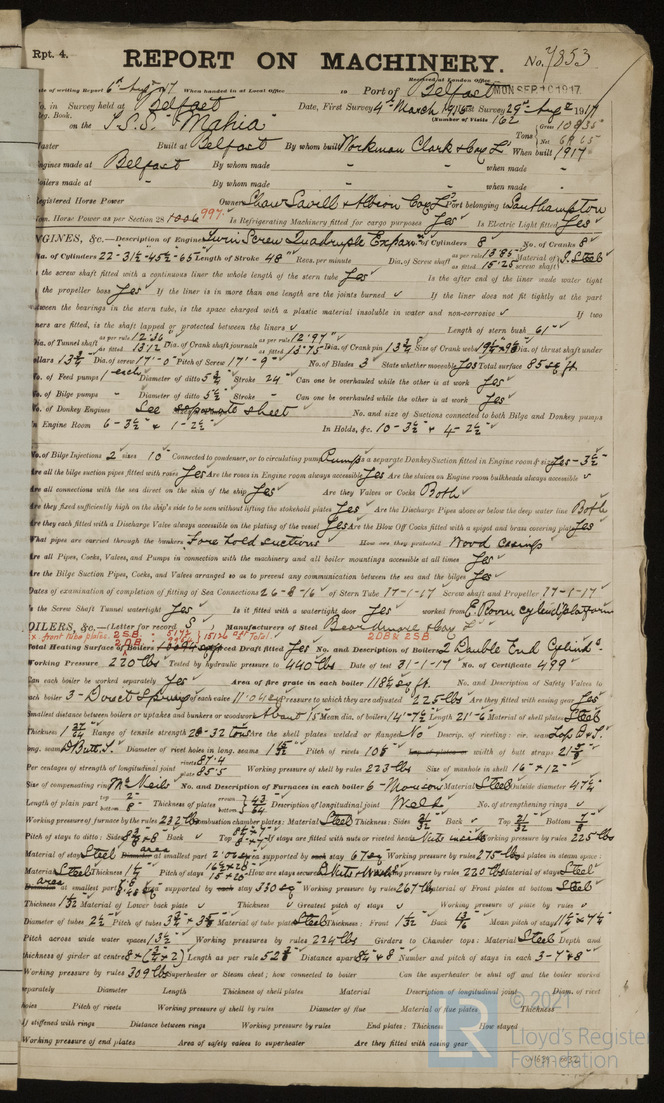 Rpt. 4.
REPORT ON MACHINERY.
No. 7853
Received at London Office
MON SEP 10 1917
of writing Report When handed in at Local Office Port of Belfast
in Survey held at Belfast Date, First Survey 4th March 1916 Last Survey 29th Aug 1917
Reg. Book. (Number of Visits 162)
on the T.S.S. "Mahia"
Tons Gross 10835 Net
Built at Belfast By whom built Workman Clark & Coy Ld When built 1917
Engines made at Belfast By whom made - when made -
Boilers made at - By whom made - when made -
Registered Horse Power Owners Shaw Savill & Albion Coy Ld Port belonging to Southampton
Nom. Horse Power as per Section 28 1006 997 Is Refrigerating Machinery fitted for cargo purposes Yes Is Electric Light fitted Yes
ENGINES, &c.—Description of Engines Twin Screw Quadruple Expansn No. of Cylinders 8 No. of Cranks 8
Dia. of Cylinders 22-31½-45½-65 Length of Stroke 48" Revs. per minute Dia. of Screw shaft as per rule 13.85 as fitted 15.25 Material of screw shaft S. Steel
Is the screw shaft fitted with a continuous liner the whole length of the stern tube Yes Is the after end of the liner made water tight
in the propeller boss Yes If the liner is in more than one length are the joints burned If the liner does not fit tightly at the part
between the bearings in the stern tube, is the space charged with a plastic material insoluble in water and non-corrosive If two
liners are fitted, is the shaft lapped or protected between the liners Length of stern bush 61"
Dia. of Tunnel shaft as per rule 12.36 as fitted Dia. of Crank shaft journals as per rule 12.97 as fitted 13.75 Dia. of Crank pin 13¾ Size of Crank webs Dia. of thrust shaft under
collars 13¾ Dia. of screw 17'-0" Pitch of Screw 17'-9" No. of Blades 3 State whether moveable Yes Total surface 85 sq ft
No. of Feed pumps 1 each Diameter of ditto 5¾ Stroke 24" Can one be overhauled while the other is at work Yes
No. of Bilge pumps " Diameter of ditto 5½ Stroke " Can one be overhauled while the other is at work Yes
No. of Donkey Engines See separate sheet No. and size of Suctions connected to both Bilge and Donkey pumps
In Engine Room 6-3½" & 1-2½" In Holds, &c. 10-3½" & 4-2½"
No. of Bilge Injections 2 sizes 10" Connected to condenser, or to circulating pump Pump Is a separate Donkey Suction fitted in Engine room & size Yes-3½"
Are all the bilge suction pipes fitted with roses Yes Are the roses in Engine room always accessible Yes Are the sluices on Engine room bulkheads always accessible
Are all connections with the sea direct on the skin of the ship Yes Are they Valves or Cocks Both
Are they fixed sufficiently high on the ship's side to be seen without lifting the stokehold plates Yes Are the Discharge Pipes above or below the deep water line Both
Are they each fitted with a Discharge Valve always accessible on the plating of the vessel Yes Are the Blow Off Cocks fitted with a spigot and brass covering plate Yes
What pipes are carried through the bunkers Fore hold suctions How are they protected Wood casings
Are all Pipes, Cocks, Valves, and Pumps in connection with the machinery and all boiler mountings accessible at all times Yes
Are the Bilge Suction Pipes, Cocks, and Valves arranged so as to prevent any communication between the sea and the bilges Yes
Dates of examination of completion of fitting of Sea Connections 26-8-16 of Stern Tube 17-1-17 Screw shaft and Propeller 17-1-17
Is the Screw Shaft Tunnel watertight Yes Is it fitted with a watertight door Yes worked from E. Room cylindr platform
BOILERS, &c.—(Letter for record S) Manufacturers of Steel Beardmore & Coy Ld
x front tube plates 2SB. 2DB. 15126 sq ft Total 2DB & 2SB
Total Heating Surface of Boilers Forced Draft fitted Yes No. and Description of Boilers 2 Double End Cylind.
Working Pressure 220 lbs Tested by hydraulic pressure to 440 lbs Date of test 31-1-17 No. of Certificate 499
Can each boiler be worked separately Yes Area of fire grate in each boiler 118½ sq ft. No. and Description of Safety Valves to
each boiler 3-Direct Spring Area of each valve 11.04 sq Pressure to which they are adjusted 225 lbs Are they fitted with easing gear Yes
Smallest distance between boilers or uptakes and bunkers or woodwork About 15" Mean dia. of boilers 14'-7½ Length 21'-6 Material of shell plates Steel
Thickness Range of tensile strength 28-32 tons Are the shell plates welded or flanged No Descrip. of riveting: cir. seams Laps D & T.
long. seams D Butt S. Diameter of rivet holes in long. seams Pitch of rivets width of butt straps
Per centages of strength of longitudinal joint rivets 87.4 plate 85.5 Working pressure of shell by rules 223 lbs Size of manhole in shell 16" x 12"
Size of compensating ring McNeils No. and Description of Furnaces in each boiler 6-Morison Material Steel Outside diameter 47¼"
Length of plain part top bottom Thickness of plates crown bottom Description of longitudinal joint Weld No. of strengthening rings
Working pressure of furnace by the rules 232 lbs Combustion chamber plates: Material Steel Thickness: Sides 21/32 Back Top 21/32 Bottom 7/8
Pitch of stays to ditto: Sides Back Top If stays are fitted with nuts or riveted heads Nuts inside Working pressure by rules 225 lbs
Material of stays Steel area at smallest part Area supported by each stay 67 sq Working pressure by rules 275 lbs End plates in steam space:
Material Steel Thickness Pitch of stays How are stays secured D Nuts & Wash Working pressure by rules 220 lbs Material of stays Steel
area at smallest part supported by each stay 330 sq Working pressure by rules 267 lbs Material of Front plates at bottom Steel
Thickness Material of Lower back plate Thickness Greatest pitch of stays Working pressure of plate by rules
Diameter of tubes 2½ Pitch of tubes Material of tube plates Steel Thickness: Front Back Mean pitch of stays
Pitch across wide water spaces 13½ Working pressures by rules 224 lbs Girders to Chamber tops: Material Steel Depth and
thickness of girder at centre Length as per rule Distance apart Number and pitch of stays in each
Working pressure by rules 309 lbs Superheater or Steam chest; how connected to boiler Can the superheater be shut off and the boiler worked
separately Diameter Length Thickness of shell plates Material Description of longitudinal joint Diam. of rivet
holes Pitch of rivets Working pressure of shell by rules Diameter of flue Material of flue plates Thickness
If stiffened with rings Distance between rings Working pressure by rules End plates: Thickness How stayed
Working pressure of end plates Area of safety valves to superheater Are they fitted with easing gear
© 2021
LR
Lloyd's Register
Foundation